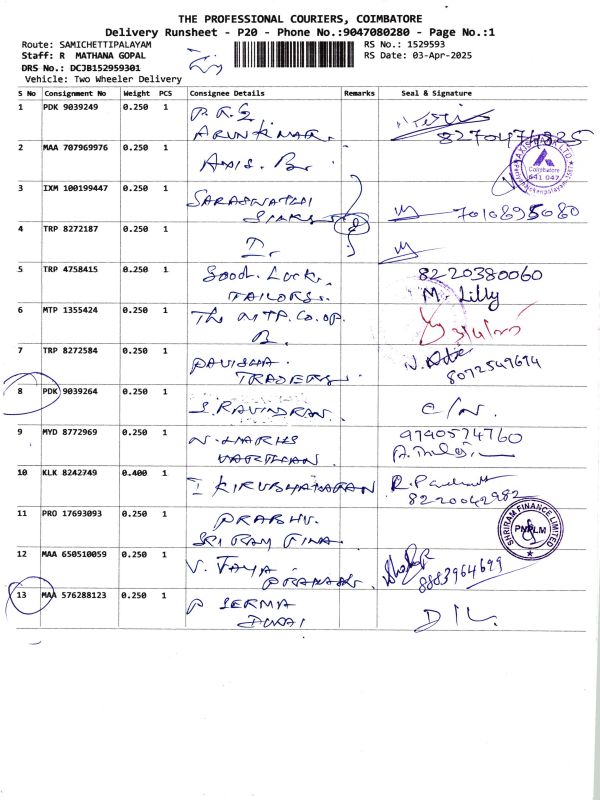 THE PROFESSIONAL COURIERS, COIMBATORE
Delivery Runsheet - P20 - Phone No.:9047080280 - Page No.:1
Route: SAMICHETTIPALAYAM
RS No.: 1529593
Staff: R MATHANA GOPAL
RS Date: 03-Apr-2025
DRS No.: DCJB152959301
Vehicle: Two Wheeler Delivery
S No Consignment No Weight PCS Consignee Details Remarks Seal & Signature
1 PDK 9039249 0.250 1
ARUNKUMAR. 
2 MAA 707969976 0.250 1 AXIS. B.
AXIS BANK LTD
Coimbatore
641 047
3 IXM 100199447 0.250 1 SARASWATHI
SINKS 7010895080
4 TRP 8272187 0.250 1
5 TRP 4758415 0.250 1 Good. Luck. 8220380060
TAILORS. M. Lilly
6 MTP 1355424 0.250 1 The MTP. Co. op. 3/4/25
B.
7 TRP 8272584 0.250 1 PAVISHA.
TRADERS 8072549694
8 PDK 9039264 0.250 1 S. RAVINDRAN. C/N.
9 MYD 8772969 0.250 1 N. HARHS 9790574760
VARTHAN
10 KLK 8242749 0.400 1 I KIRUBHAKARAN
8220042982
11 PRO 17693093 1 PRABHU.
SRI RAM FINA.
SHRIRAM FINANCE LIMITED
12 MAA 650510059 0.250 1 V. JAYA
PRAKASH. 8883964699
13 MAA 576288123 0.250 1 P SERMA
DURAI D/L.